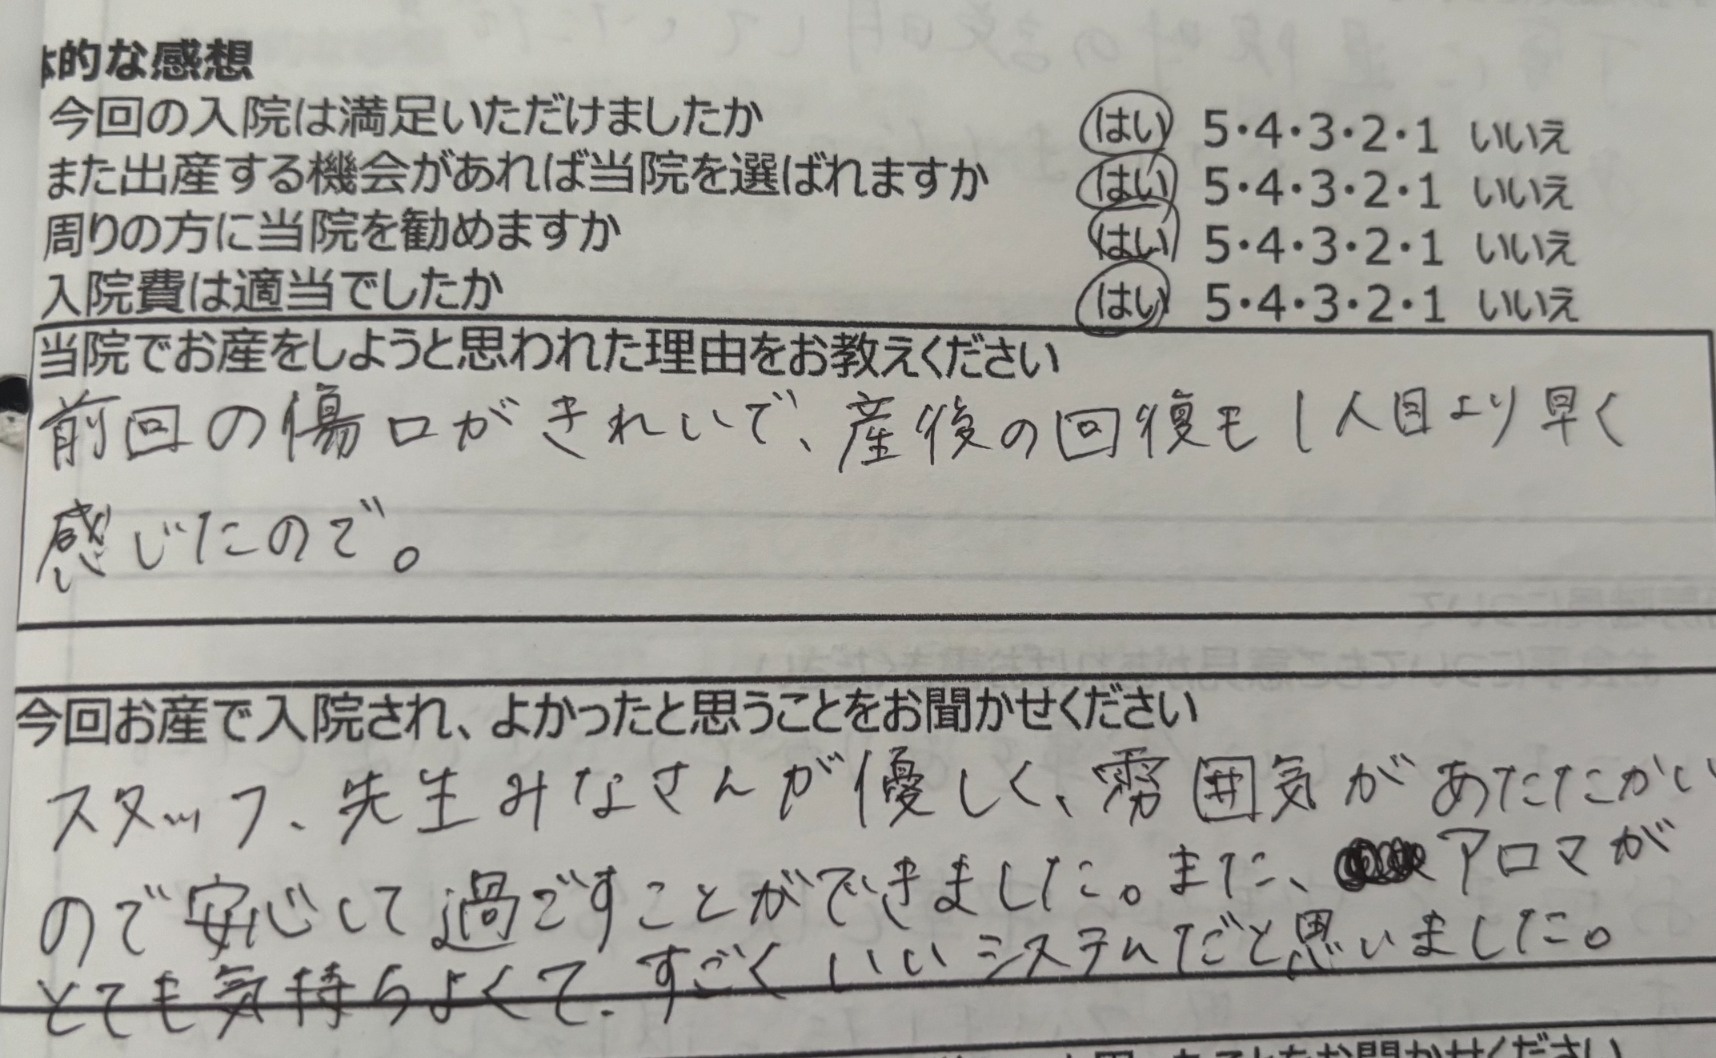 的な感想
今回の入院は満足いただけましたか はい 5・4・3・2・1 いいえ
また出産する機会があれば当院を選ばれますか はい 5・4・3・2・1 いいえ
周りの方に当院を勧めますか はい 5・4・3・2・1 いいえ
入院費は適当でしたか はい 5・4・3・2・1 いいえ
当院でお産をしようと思われた理由をお教えください
前回の傷口がきれいで、産後の回復も1人目より早く
感じたので。
今回お産で入院され、よかったと思うことをお聞かせください
スタッフ、先生みなさんが優しく、雰囲気があたたかい
ので安心して過ごすことができました。また、アロマが
とても気持ちよくて、すごくいいシステムだと思いました。
ことをお聞かせください